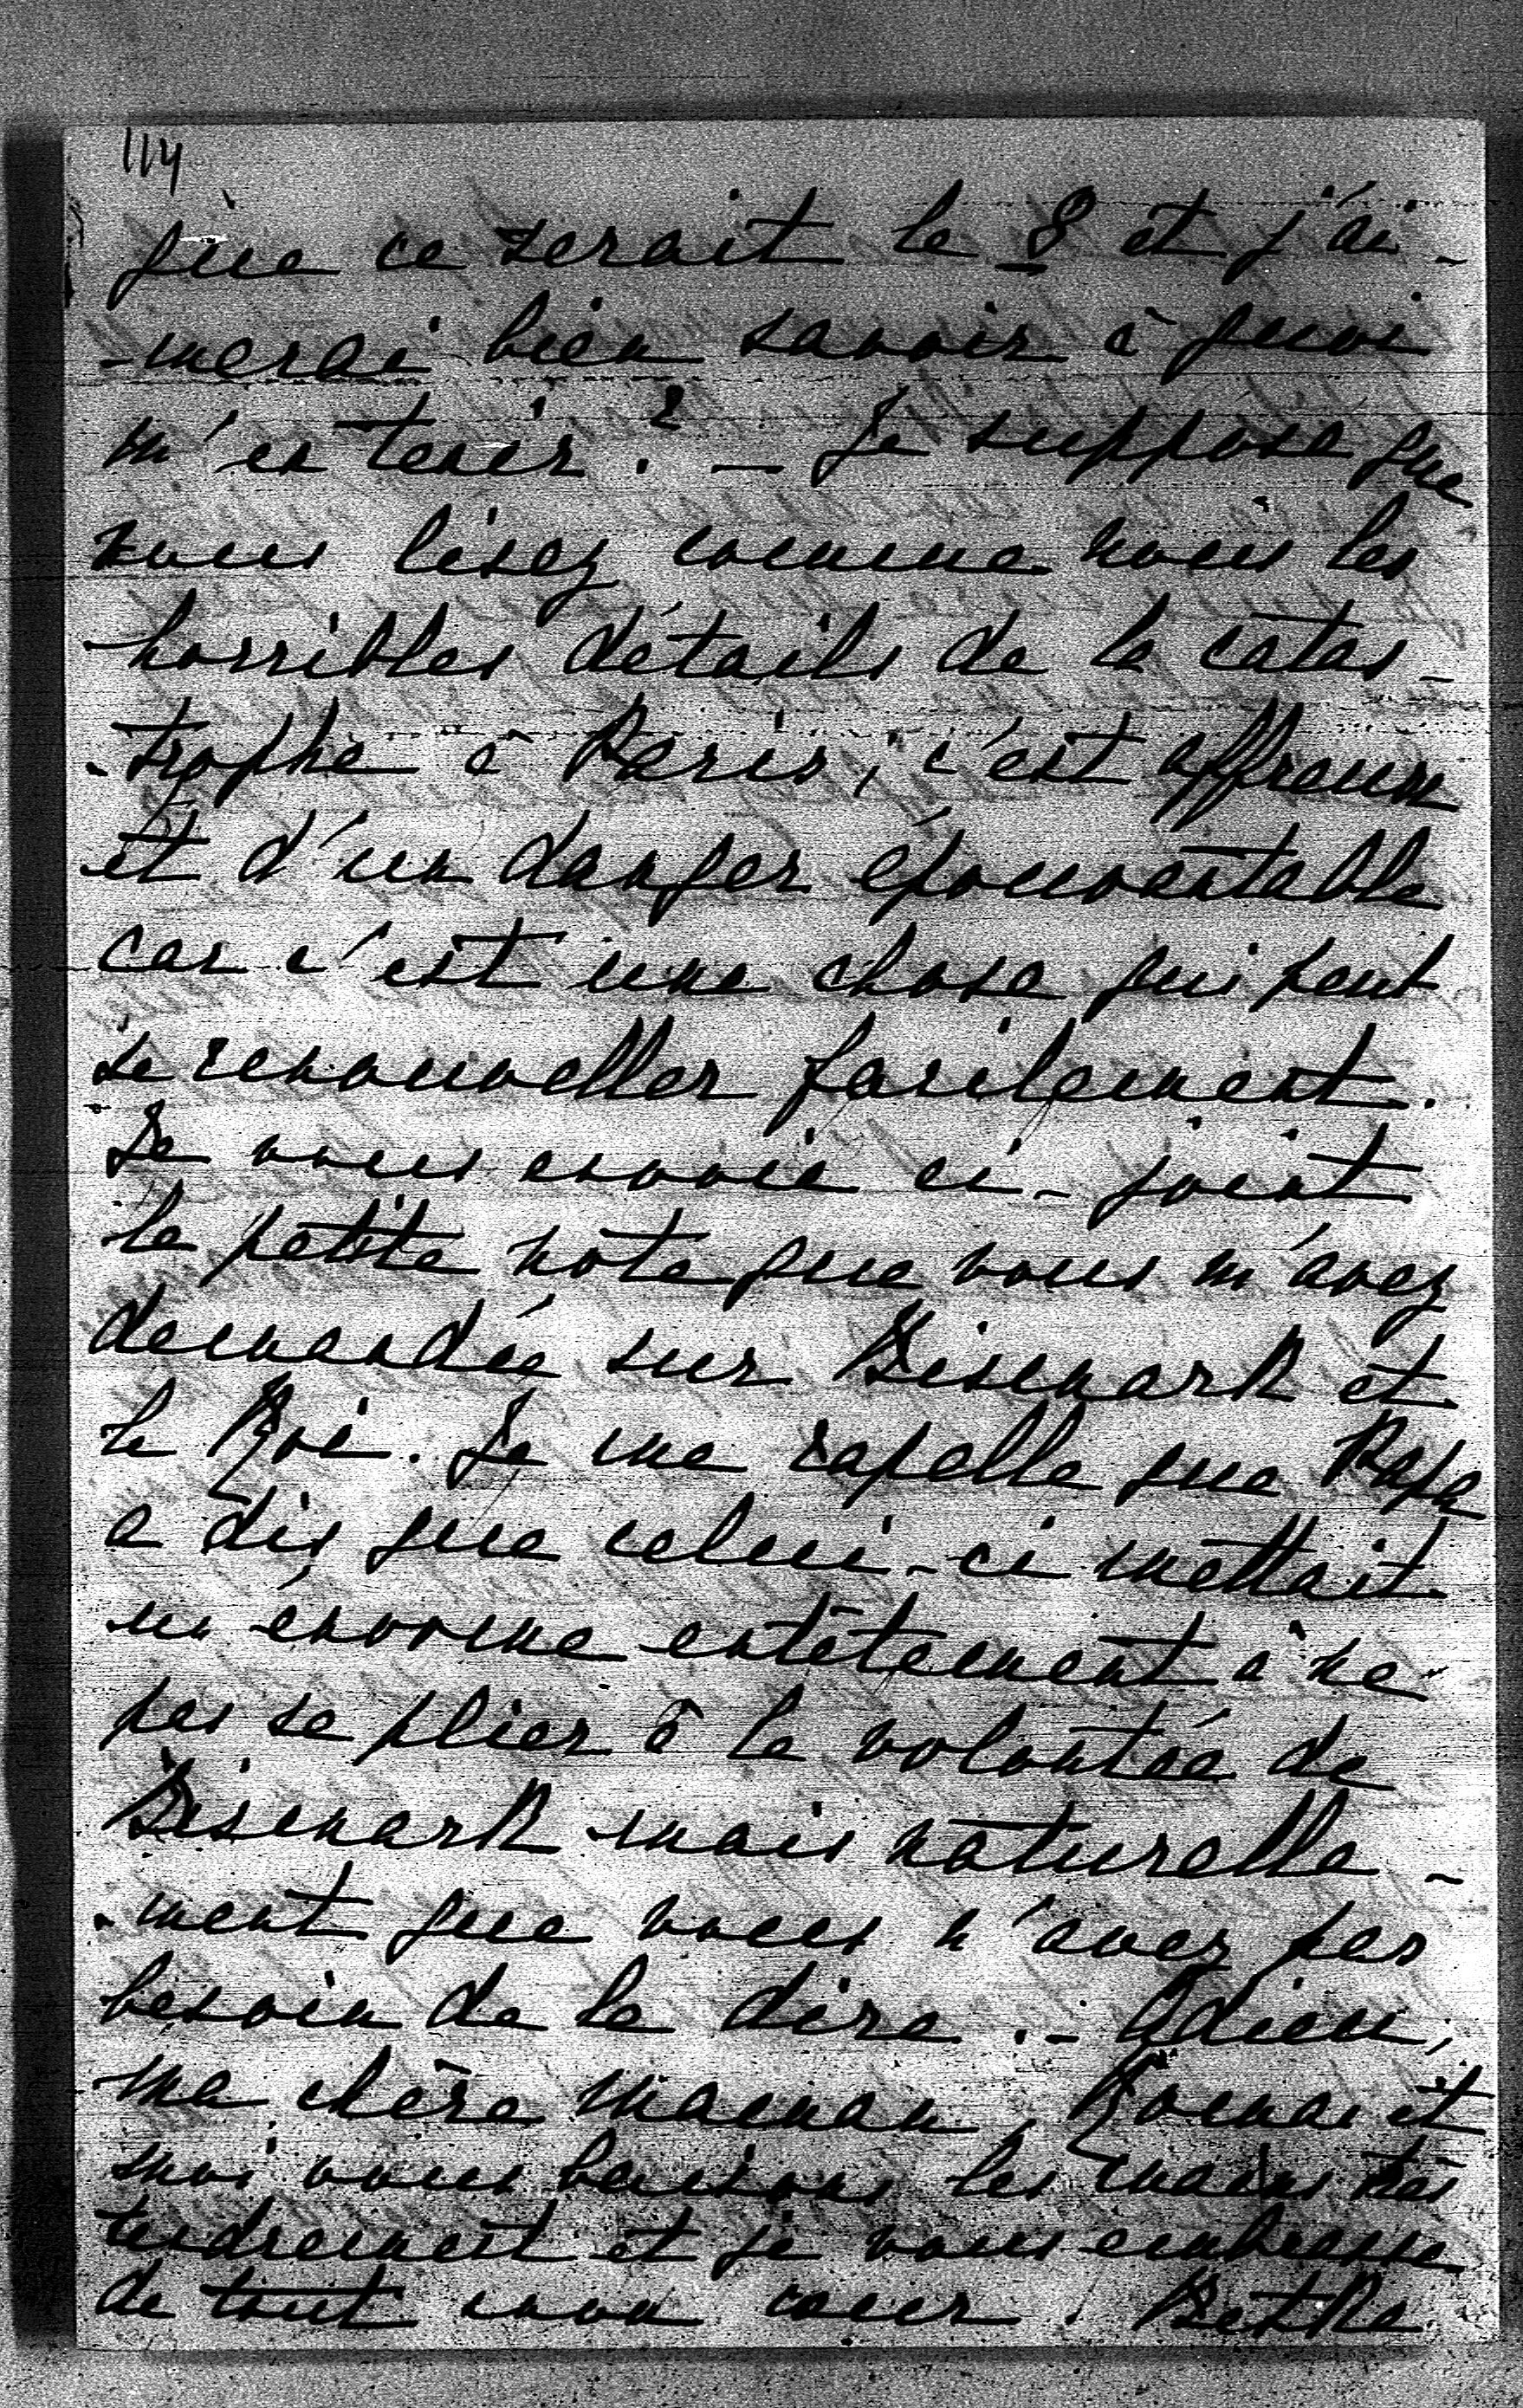 114
que ce serait le 8 et j'ai-
-merai bien savoir à quoi
m'en tenir? — Je suppose que
vous lisez comme nous les
horribles détails de la catas-
-trophe à Paris; c'est affreux
et d'un danger épouvantable
car c'est une chose qui peut
se renouveller facilement.
Je vous envoie ci-joint
la petite note que vous m'avez
demandée sur Bismark et
le Roi. Je me rapelle que Papa
a dis que celui-ci mettait
un énorme entêtement à ne
pas se plier à la volontée de
Bismark mais naturelle-
-ment que vous n'avez pas
besoin de le dire. - Adieu,
ma chère maman, et
moi vous baisons les mains très
tendrement et je vous embrasse
de tout mon coeur. Betka